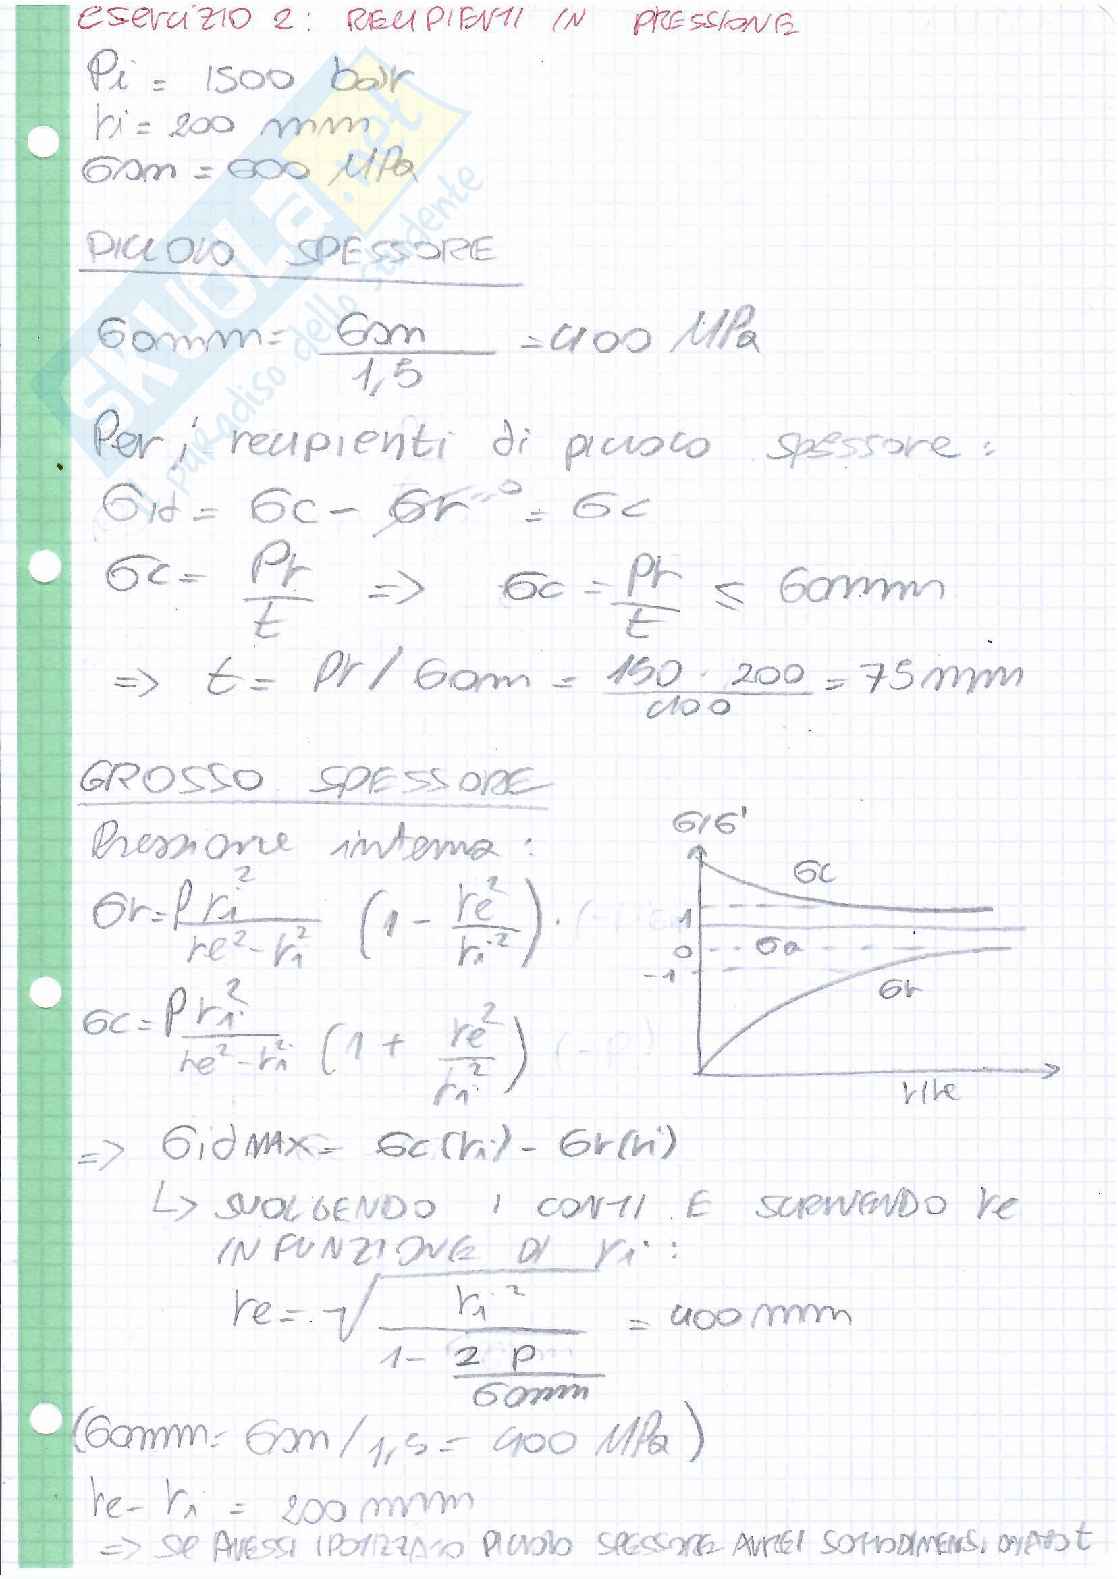 esercizio 2: RECIPIENTI IN PRESSIONE
Pi = 1500 bar
ri = 200 mm
σsn = 600 MPa
PICCOLO SPESSORE
σamm = σsn / 1,5 = 400 MPa
Per i recipienti di piccolo spessore:
σid = σc - σr →0 = σc
σc = Pr/t => σc = Pr/t ≤ σamm
=> t = Pr / σam = 150 · 200 / 400 = 75 mm
GROSSO SPESSORE
Pressione interna:
σr = P ri² / (re² - ri²) (1 - re²/ri²)
σc = P ri² / (re² - ri²) (1 + re²/ri²)
σ/σ'
σc
1
0
σa
-1
σr
r/re
=> σid MAX = σc(ri) - σr(ri)
↳ SVOLGENDO I CONTI E SCRIVENDO re
IN FUNZIONE DI ri:
re = √(ri² / (1 - 2P/σamm)) = 400 mm
(σamm = σsn / 1,5 = 400 MPa)
re - ri = 200 mm
=> SE AVESSI IPOTIZZATO PICCOLO SPESSORE AVREI SOTTODIMENSIONATO t
SKUOLA.net
il paradiso dello studente